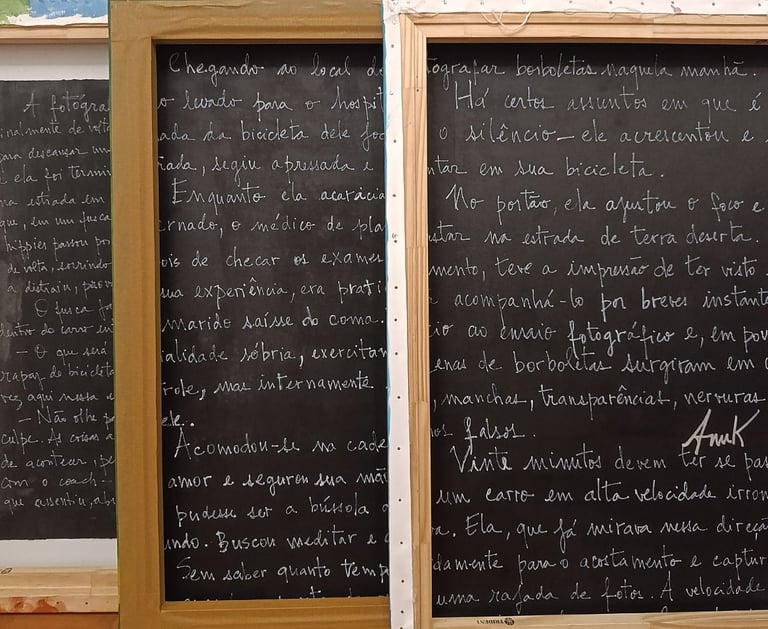 A fotogra
inalmente de
para descansar um
e ela foi
na estrada em
que, em um fusca
hippies passou por
de volta, sorrindo
a distraiu,
O fusca
dentro do carro
— O que será
rapaz de bicicleta
vez aqui nessa e
— Não olhe p
culpe. As coisas a
de acontecer, pe
com o coach —
que assentiu, ab
Chegando ao local de
o levado para o hospit
ada da bicicleta dele foc
riada, seguiu apressada e
Enquanto ela acaricia
ernado, o médico de pla
ois de checar os exames
sua experiência, era prati
marido saísse do coma.
ialidade sóbria, exercitan
role, mas internamente
ele..
Acomodou-se na cade
amor e segurou sua mão
pudesse ser a bússola a
undo. Buscou meditar e
Sem saber quanto temp
tografar borboletas naquela manhã.
Há certos assuntos em que é
o silêncio — ele acrescentou e
ntar em sua bicicleta.
No portão, ela ajustou o foco e
star na estrada de terra deserta.
mento, teve a impressão de ter visto
acompanhá-lo por breves instant
io ao ensaio fotográfico e, em pou
enas de borboletas surgiram em
, manchas, transparências, nervuras
os falsos.
AnuK
Vinte minutos devem ter se pas
um carro em alta velocidade irrom
a. Ela, que já mirava nessa direçã
damente para o acostamento e captur
uma rajada de fotos. A velocidade
TRIDENT